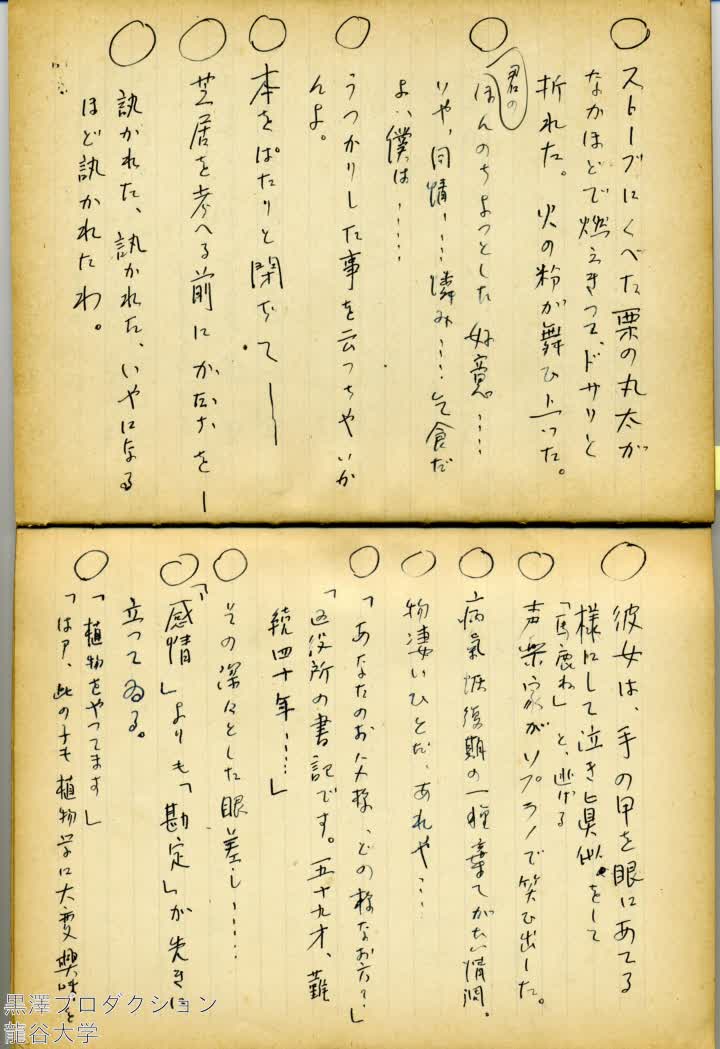 ○ ストーブにくべた栗の丸太が
なかほどで燃えきつて、ドサリと
折れた。火の粉が舞ひ上つた。
君の
○ ほんのちよつとした好意……
いや、同情……憐み……乞食だ
よ、僕は……
○ うつかりした事を云つちやいか
んよ。
○ 本をぱたりと閉ぢて──
○ 芝居を考へる前に を─
○ 訊かれた、訊かれた、いやになる
ほど訊かれたわ。
○ 彼女は、手の甲を眼にあてる
様にして泣き真似をして
「馬鹿ね」と、逃げる
○ 声楽家がソプラノで笑ひ出した。
○ 病氣恢復期の一種棄てがたい情調。
○ 物凄いひとだ、あれや……
○ 「あなたのお父様、どの様なお方?」
「区役所の書記です。五十九才、難
続四十年……」
○ その深々とした眼差し……
○ 「感情」よりも「勘定」が先きに
立つてゐる。
○ 「植物をやつてます」
「はア、此の子も植物学に大変興味を
黒澤プロダクション
龍谷大学